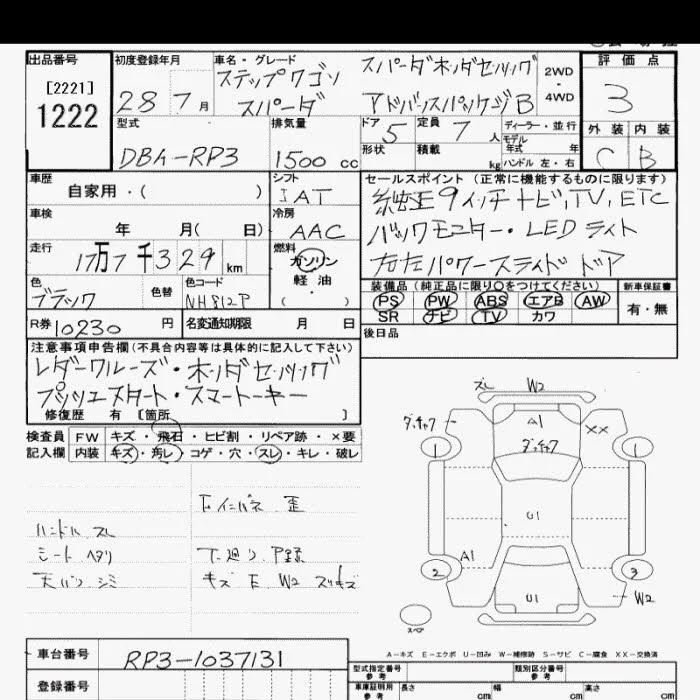 出品番号
[2221]
1222
初度登録年月
28 7月
車名・グレード
ステップワゴン
スパーダ
スパーダホンダセンシング
アドバンスパッケージB
2WD
・
4WD
評価点
3
外装 内装
C B
型式
DBA-RP3
排気量
1500 cc
ドア 5
定員 7 人
形状
積載 kg
ディーラー・並行
モデル年式 年
ハンドル 左・右
車歴
自家用・( )
シフト
IAT
車検
年 月( 日)
冷房
AAC
走行
17万7千329 km
燃料
ガソリン
・
軽油
・
( )
色
ブラック
色替
色コード
NH812P
R券 10230 円
名変通知期限 月 日
セールスポイント (正常に機能するものに限ります)
純正9インチナビ,TV,ETC
バックモニター・LEDライト
左右パワースライドドア
装備品 (純正品に限り○をつけてください)
PS PW ABS エアB AW
SR ナビ TV カワ
新車保証書
有・無
後日品
注意事項申告欄 (不具合内容等は具体的に記入して下さい)
レダークルーズ・ホンダセンシング
プッシュスタート・スマートキー
修復歴 有 [箇所 ]
検査員 FW キズ・飛石・ヒビ割・リペア跡・×要
記入欄 内装 キズ・汚レ・コゲ・穴・スレ・キレ・破レ
ハンドル スレ
シート ヘタリ
天バリ シミ
インパネ 歪
下廻り
キズ E W2
スレ W2
ダッチャク
A1
XX
ダッチャク
1 1
U1
A1
2 3
U1
W2
スペア
A-キズ E-エクボ U-凹み W-補修跡 S-サビ C-腐食 XX-交換済
車台番号 RP3-1037131
登録番号
型式指定番号 参考
類別区分番号 参考
車庫証明用 参考
長さ cm
幅 cm
高さ cm